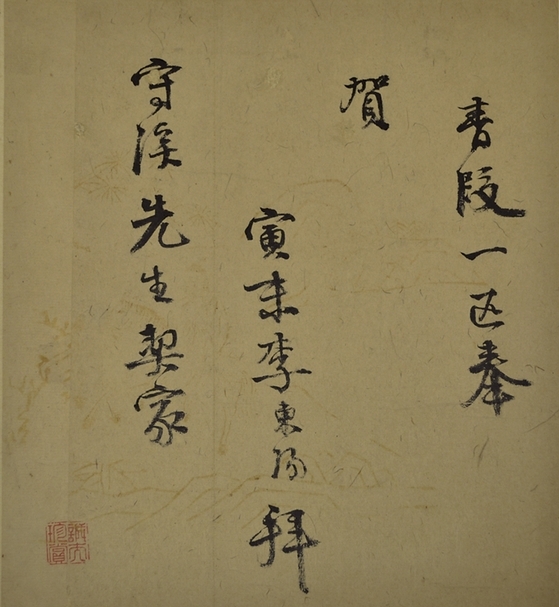 青段一匹奉
賀
寅末李東陽拜
守溪先生契家